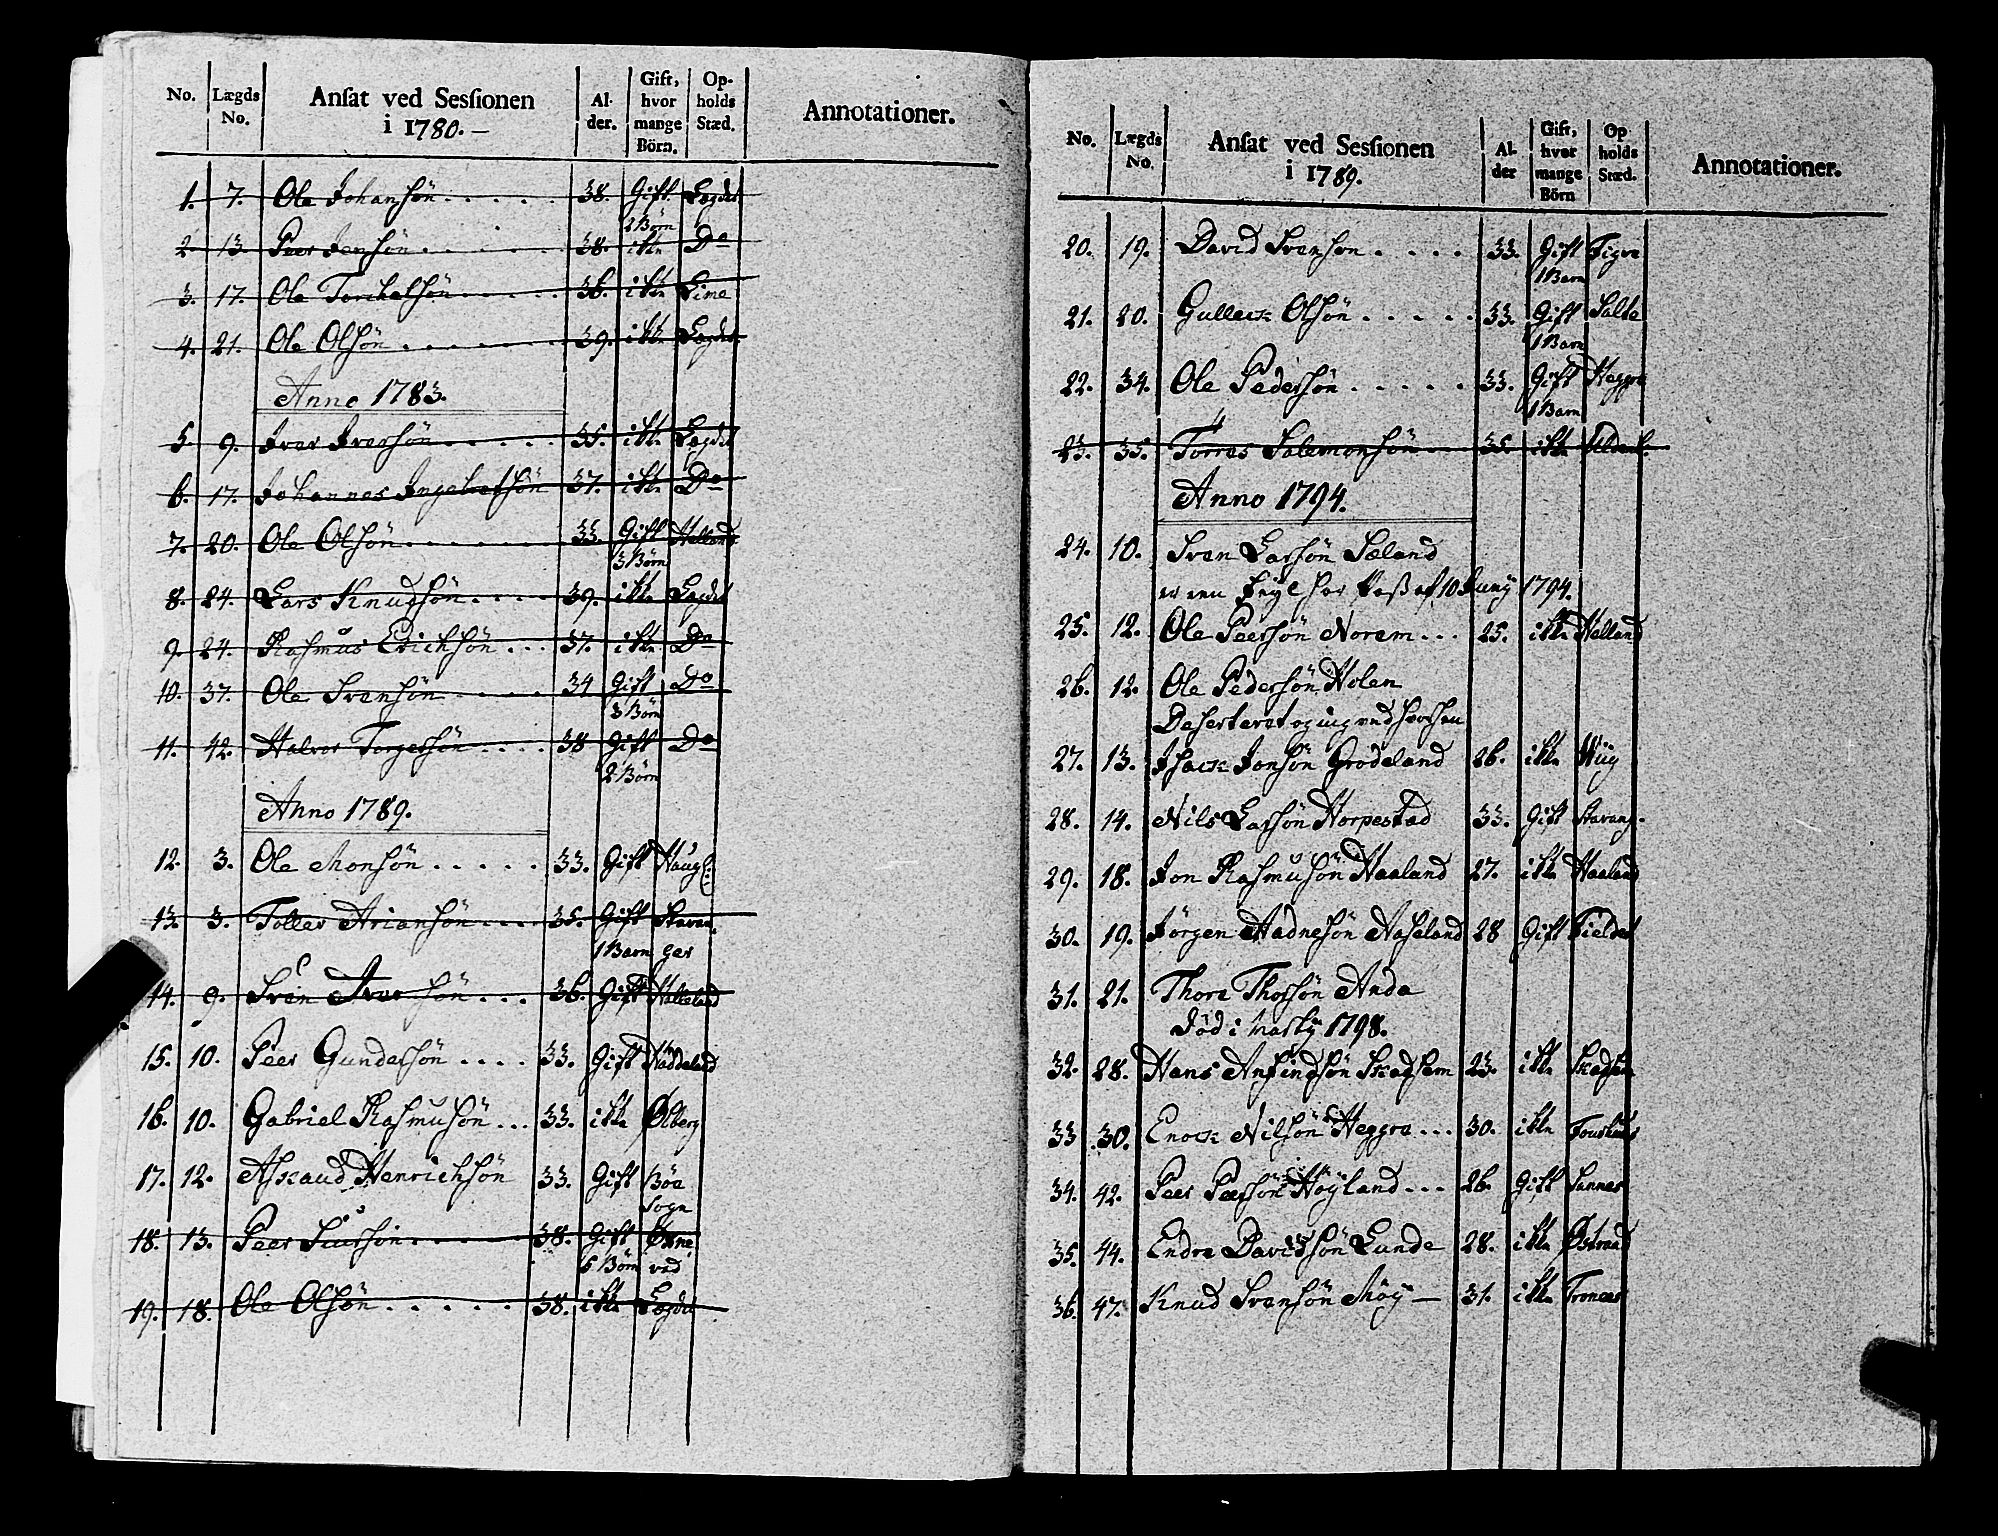 No. Lægds No. Ansat ved Sessionen i 1780.— Al-der. Gift, hvor mange Börn. Op-holds Stæd. Annotationer.
1. 7. Ole Johansön . . . . . 38. Gift Lægdet
2 Börn
2. 13. Peer Jensön . . . . . 38. ikke Do
3. 17. Ole Torchelsön . . . . . 36. ikke Lime
4. 21. Ole Olsön . . . . . 39. ikke Lægdet
Anno 1783.
5. 9. Iver Iversön . . . . . 35. ikke Lægdet
6. 17. Johannes Ingebretsön 37. ikke Do
7. 20. Ole Olsön . . . . . 33. Gift Helland
3 Börn
8. 24. Lars Knudsön . . . . 39. ikke Lægdet
9. 24. Rasmus Erichsön . . . 37. ikke Do
10. 37. Ole Svensön . . . . . 34 Gift Do
3 Börn
11. 42. Halvor Torgersön . . . . 38 Gift Do
2 Börn
Anno 1789.
12. 3. Ole Monsön . . . . . 33. Gift Haugl
13. 3. Toller Ariansön . . . . 35. Gift Stavan
1 Barn ger
14. 9. Sven Iversön . . . 36. Gift
15. 10. Peer Gundersön . . . . 33. Gift Häddeland
16. 10. Gabriel Rasmusön . . . 33. ikke Ølberg
17. 12. Askaud Henrichsön 33. Gift Böe
Sogn
18. 13. Peer . . . . . 38. Gift
5 Börn ved
19. 18. Ole Olsön . . . . . 38. ikke Lægdet
No. Lægds No. Ansat ved Sessionen i 1789. Al-der Gift, hvor mange Börn Op holds Stæd. Annotationer.
20. 19. David Svensön . . . . 33. Gift Tigre
1 Barn
21. 20. Gullech Olsön . . . . . 33. Gift Salte
1 Barn
22. 34. Ole Pedersön . . . . . 33. Gift Heggre
1 Barn
23. 35. Torres Salemonsön . . 35. ikke
Anno 1794.
24. 10. Sven Larsön Sæland
har Pass af 10 Juny 1794.
25. 12. Ole Peersön Norem . . . 25. ikke Helland
26. 12. Ole Pedersön Holen
Deserteret og
27. 13. Isack Jonsön Grödeland 26. ikke Wiig
28. 14. Nils Larsön Horpestad 33. Gift Stavang.
29. 18. Jon Rasmusön Haaland 27. ikke Haaland
30. 19. Jörgen Aadnesön Aaseland 28 Gift Fieldet
31. 21. Thore Thorsön Anda
död i Marty 1798.
32. 28. Hans Anfindsön Skadsem 23. ikke Skadsem
33 30. Enock Nilsön Heggre . . . 30. ikke
34. 42. Peer Peersön Höyland . . . 26. Gift Sannes
35. 44. Endre Davidsön Lunde 28. ikke Østraad
36. 47. Knud Svensön Möy — 31. ikke Tronæs